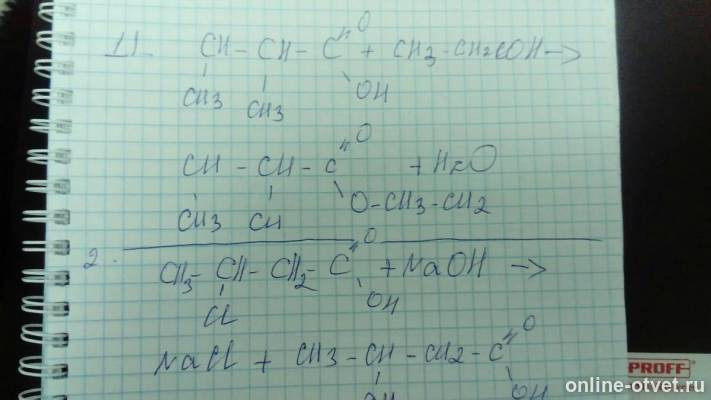 11. CH - CH - C =O + CH3 - CH2COH →
CH3 CH3 OH
CH - CH - C =O + H2O
CH3 CH O - CH3 - CH2
2. CH3 - CH - CH2 - C =O + NaOH →
Cl OH
NaCl + CH3 - CH - CH2 - C =O
OH OH
PROFF
online-otvet.ru